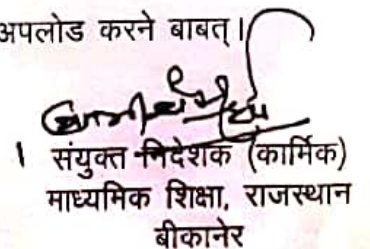 अपलोड करने बाबत्।
संयुक्त निदेशक (कार्मिक)
माध्यमिक शिक्षा, राजस्थान
बीकानेर